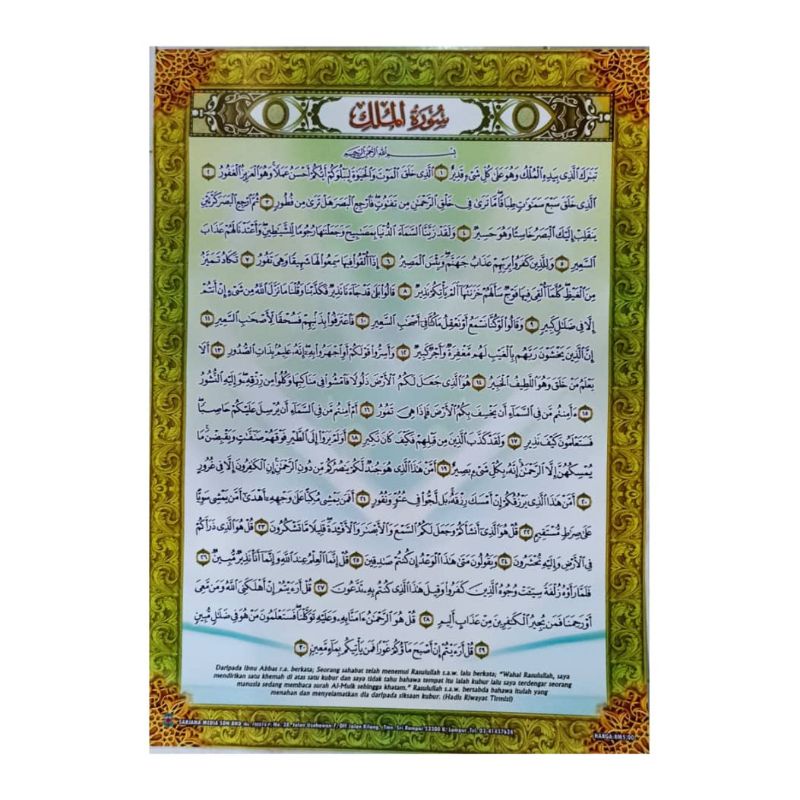 سُورَةُ المُلْكِ
بِسْمِ اللَّهِ الرَّحْمَٰنِ الرَّحِيمِ
تَبَٰرَكَ الَّذِى بِيَدِهِ الْمُلْكُ وَهُوَ عَلَىٰ كُلِّ شَىْءٍ قَدِيرٌ ١ الَّذِى خَلَقَ الْمَوْتَ وَالْحَيَوٰةَ لِيَبْلُوَكُمْ أَيُّكُمْ أَحْسَنُ عَمَلًا وَهُوَ الْعَزِيزُ الْغَفُورُ ٢
الَّذِى خَلَقَ سَبْعَ سَمَٰوَٰتٍ طِبَاقًا مَّا تَرَىٰ فِى خَلْقِ الرَّحْمَٰنِ مِن تَفَٰوُتٍ فَارْجِعِ الْبَصَرَ هَلْ تَرَىٰ مِن فُطُورٍ ٣ ثُمَّ ارْجِعِ الْبَصَرَ كَرَّتَيْنِ
يَنقَلِبْ إِلَيْكَ الْبَصَرُ خَاسِئًا وَهُوَ حَسِيرٌ ٤ وَلَقَدْ زَيَّنَّا السَّمَآءَ الدُّنْيَا بِمَصَٰبِيحَ وَجَعَلْنَٰهَا رُجُومًا لِّلشَّيَٰطِينِ وَأَعْتَدْنَا لَهُمْ عَذَابَ
السَّعِيرِ ٥ وَلِلَّذِينَ كَفَرُوا بِرَبِّهِمْ عَذَابُ جَهَنَّمَ وَبِئْسَ الْمَصِيرُ ٦ إِذَآ أُلْقُوا فِيهَا سَمِعُوا لَهَا شَهِيقًا وَهِىَ تَفُورُ ٧ تَكَادُ تَمَيَّزُ
مِنَ الْغَيْظِ كُلَّمَآ أُلْقِىَ فِيهَا فَوْجٌ سَأَلَهُمْ خَزَنَتُهَآ أَلَمْ يَأْتِكُمْ نَذِيرٌ ٨ قَالُوا بَلَىٰ قَدْ جَآءَنَا نَذِيرٌ فَكَذَّبْنَا وَقُلْنَا مَا نَزَّلَ اللَّهُ مِن شَىْءٍ إِنْ أَنتُمْ
إِلَّا فِى ضَلَٰلٍ كَبِيرٍ ٩ وَقَالُوا لَوْ كُنَّا نَسْمَعُ أَوْ نَعْقِلُ مَا كُنَّا فِىٓ أَصْحَٰبِ السَّعِيرِ ١٠ فَاعْتَرَفُوا بِذَنۢبِهِمْ فَسُحْقًا لِّأَصْحَٰبِ السَّعِيرِ ١١
إِنَّ الَّذِينَ يَخْشَوْنَ رَبَّهُم بِالْغَيْبِ لَهُم مَّغْفِرَةٌ وَأَجْرٌ كَبِيرٌ ١٢ وَأَسِرُّوا قَوْلَكُمْ أَوِ اجْهَرُوا بِهِ إِنَّهُ عَلِيمٌ بِذَاتِ الصُّدُورِ ١٣ أَلَا
يَعْلَمُ مَنْ خَلَقَ وَهُوَ اللَّطِيفُ الْخَبِيرُ ١٤ هُوَ الَّذِى جَعَلَ لَكُمُ الْأَرْضَ ذَلُولًا فَامْشُوا فِى مَنَاكِبِهَا وَكُلُوا مِن رِّزْقِهِ وَإِلَيْهِ النُّشُورُ
١٥ ءَأَمِنتُم مَّن فِى السَّمَآءِ أَن يَخْسِفَ بِكُمُ الْأَرْضَ فَإِذَا هِىَ تَمُورُ ١٦ أَمْ أَمِنتُم مَّن فِى السَّمَآءِ أَن يُرْسِلَ عَلَيْكُمْ حَاصِبًا
فَسَتَعْلَمُونَ كَيْفَ نَذِيرِ ١٧ وَلَقَدْ كَذَّبَ الَّذِينَ مِن قَبْلِهِمْ فَكَيْفَ كَانَ نَكِيرِ ١٨ أَوَلَمْ يَرَوْا إِلَى الطَّيْرِ فَوْقَهُمْ صَٰٓفَّٰتٍ وَيَقْبِضْنَ مَا
يُمْسِكُهُنَّ إِلَّا الرَّحْمَٰنُ إِنَّهُ بِكُلِّ شَىْءٍ بَصِيرٌ ١٩ أَمَّنْ هَٰذَا الَّذِى هُوَ جُندٌ لَّكُمْ يَنصُرُكُم مِّن دُونِ الرَّحْمَٰنِ إِنِ الْكَٰفِرُونَ إِلَّا فِى غُرُورٍ
٢٠ أَمَّنْ هَٰذَا الَّذِى يَرْزُقُكُمْ إِنْ أَمْسَكَ رِزْقَهُ بَل لَّجُّوا فِى عُتُوٍّ وَنُفُورٍ ٢١ أَفَمَن يَمْشِى مُكِبًّا عَلَىٰ وَجْهِهِ أَهْدَىٰٓ أَمَّن يَمْشِى سَوِيًّا
عَلَىٰ صِرَٰطٍ مُّسْتَقِيمٍ ٢٢ قُلْ هُوَ الَّذِىٓ أَنشَأَكُمْ وَجَعَلَ لَكُمُ السَّمْعَ وَالْأَبْصَٰرَ وَالْأَفْئِدَةَ قَلِيلًا مَّا تَشْكُرُونَ ٢٣ قُلْ هُوَ الَّذِى ذَرَأَكُمْ
فِى الْأَرْضِ وَإِلَيْهِ تُحْشَرُونَ ٢٤ وَيَقُولُونَ مَتَىٰ هَٰذَا الْوَعْدُ إِن كُنتُمْ صَٰدِقِينَ ٢٥ قُلْ إِنَّمَا الْعِلْمُ عِندَ اللَّهِ وَإِنَّمَآ أَنَا نَذِيرٌ مُّبِينٌ ٢٦
فَلَمَّا رَأَوْهُ زُلْفَةً سِيٓـَٔتْ وُجُوهُ الَّذِينَ كَفَرُوا وَقِيلَ هَٰذَا الَّذِى كُنتُم بِهِ تَدَّعُونَ ٢٧ قُلْ أَرَءَيْتُمْ إِنْ أَهْلَكَنِىَ اللَّهُ وَمَن مَّعِىَ
أَوْ رَحِمَنَا فَمَن يُجِيرُ الْكَٰفِرِينَ مِنْ عَذَابٍ أَلِيمٍ ٢٨ قُلْ هُوَ الرَّحْمَٰنُ ءَامَنَّا بِهِ وَعَلَيْهِ تَوَكَّلْنَا فَسَتَعْلَمُونَ مَنْ هُوَ فِى ضَلَٰلٍ مُّبِينٍ
٢٩ قُلْ أَرَءَيْتُمْ إِنْ أَصْبَحَ مَآؤُكُمْ غَوْرًا فَمَن يَأْتِيكُم بِمَآءٍ مَّعِينٍۭ ٣٠
Daripada Ibnu Abbas r.a. berkata; Seorang sahabat telah menemui Rasulullah s.a.w. lalu berkata; "Wahai Rasulullah, saya
mendirikan satu khemah di atas satu kubur dan saya tidak tahu bahawa tempat itu ialah kubur lalu saya terdengar seorang
manusia sedang membaca surah Al-Mulk sehingga khatam." Rasulullah s.a.w. bersabda bahawa itulah yang
menahan dan menyelamatkan dia daripada siksaan kubur. (Hadis Riwayat Tirmizi)
SARJANA MEDIA SDN BHD No. 28, Jalan Usahawan 7, Off Jalan Kilang, Tmn. Sri Rampai 53300 K/Lumpur
HARGA:RM5.00